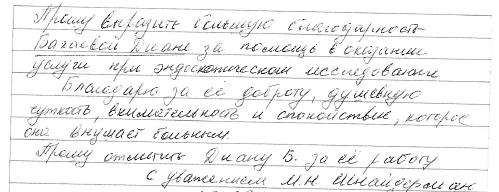 Прошу выразить большую благодарность
Багаевой Диане за помощь в оказании
услуги при эндоскопическом исследовании
Благодарю за её доброту, душевную
чуткость, внимательность и спокойствие, которое
она внушает больным.
Прошу отметить Диану Б. за её работу
С уважением М.Н. Шнайдерман